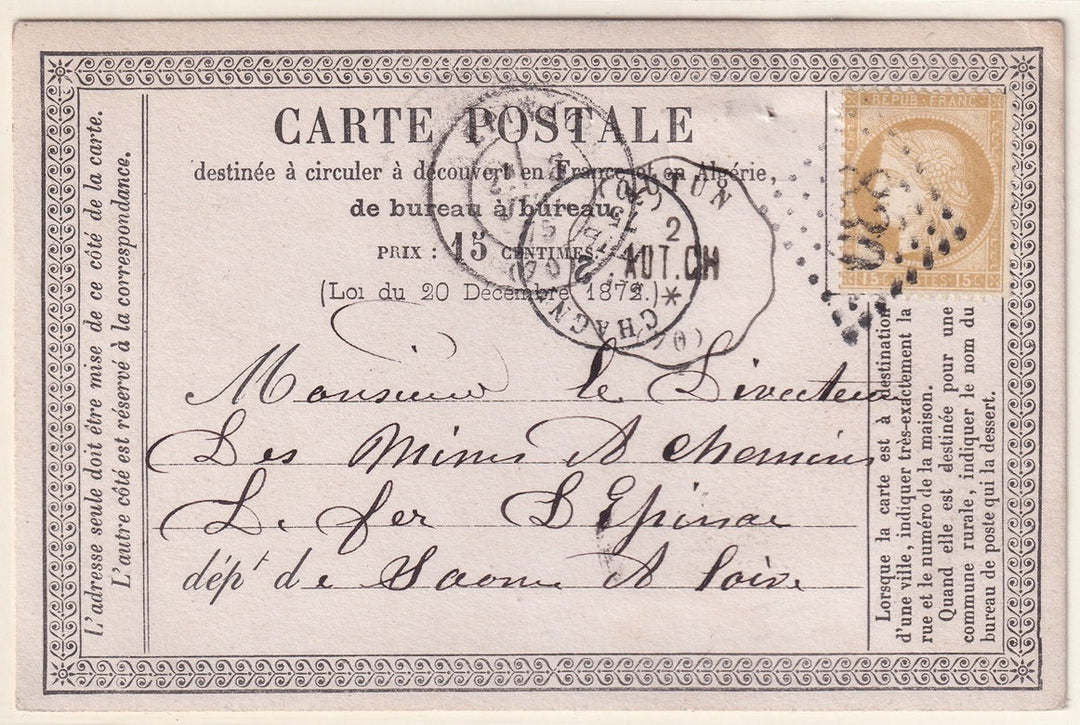 CARTE POSTALE
destinée à circuler à découvert en France et en Algérie,
de bureau à bureau.
PRIX : 15 CENTIMES.
(Loi du 20 Décembre 1872.)
REPUB. FRANC.
15 C POSTES 15 C
AUTUN
2
AUT.CH
CHAGNY
Monsieur le Directeur
Des Mines & chemins
De fer D'Epinac
dépt de Saone & Loire
L'adresse seule doit être mise de ce côté de la carte.
L'autre côté est réservé à la correspondance.
Lorsque la carte est à destination
d'une ville, indiquer très-exactement la
rue et le numéro de la maison.
Quand elle est destinée pour une
commune rurale, indiquer le nom du
bureau de poste qui la dessert.